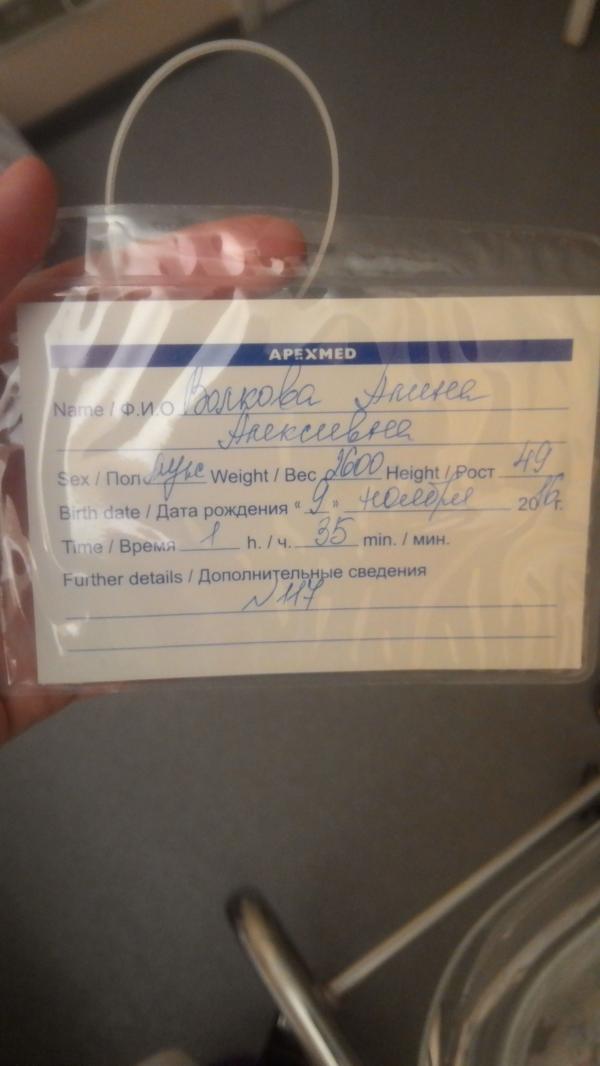 APEXMED
Name / Ф.И.О Волкова Алина
Алексеевна
Sex / Пол муж Weight / Вес 2600 Height / Рост 49
Birth date / Дата рождения “ 9 ” ноября 2016г.
Time / Время 1 h. / ч. 35 min. / мин.
Further details / Дополнительные сведения
№117